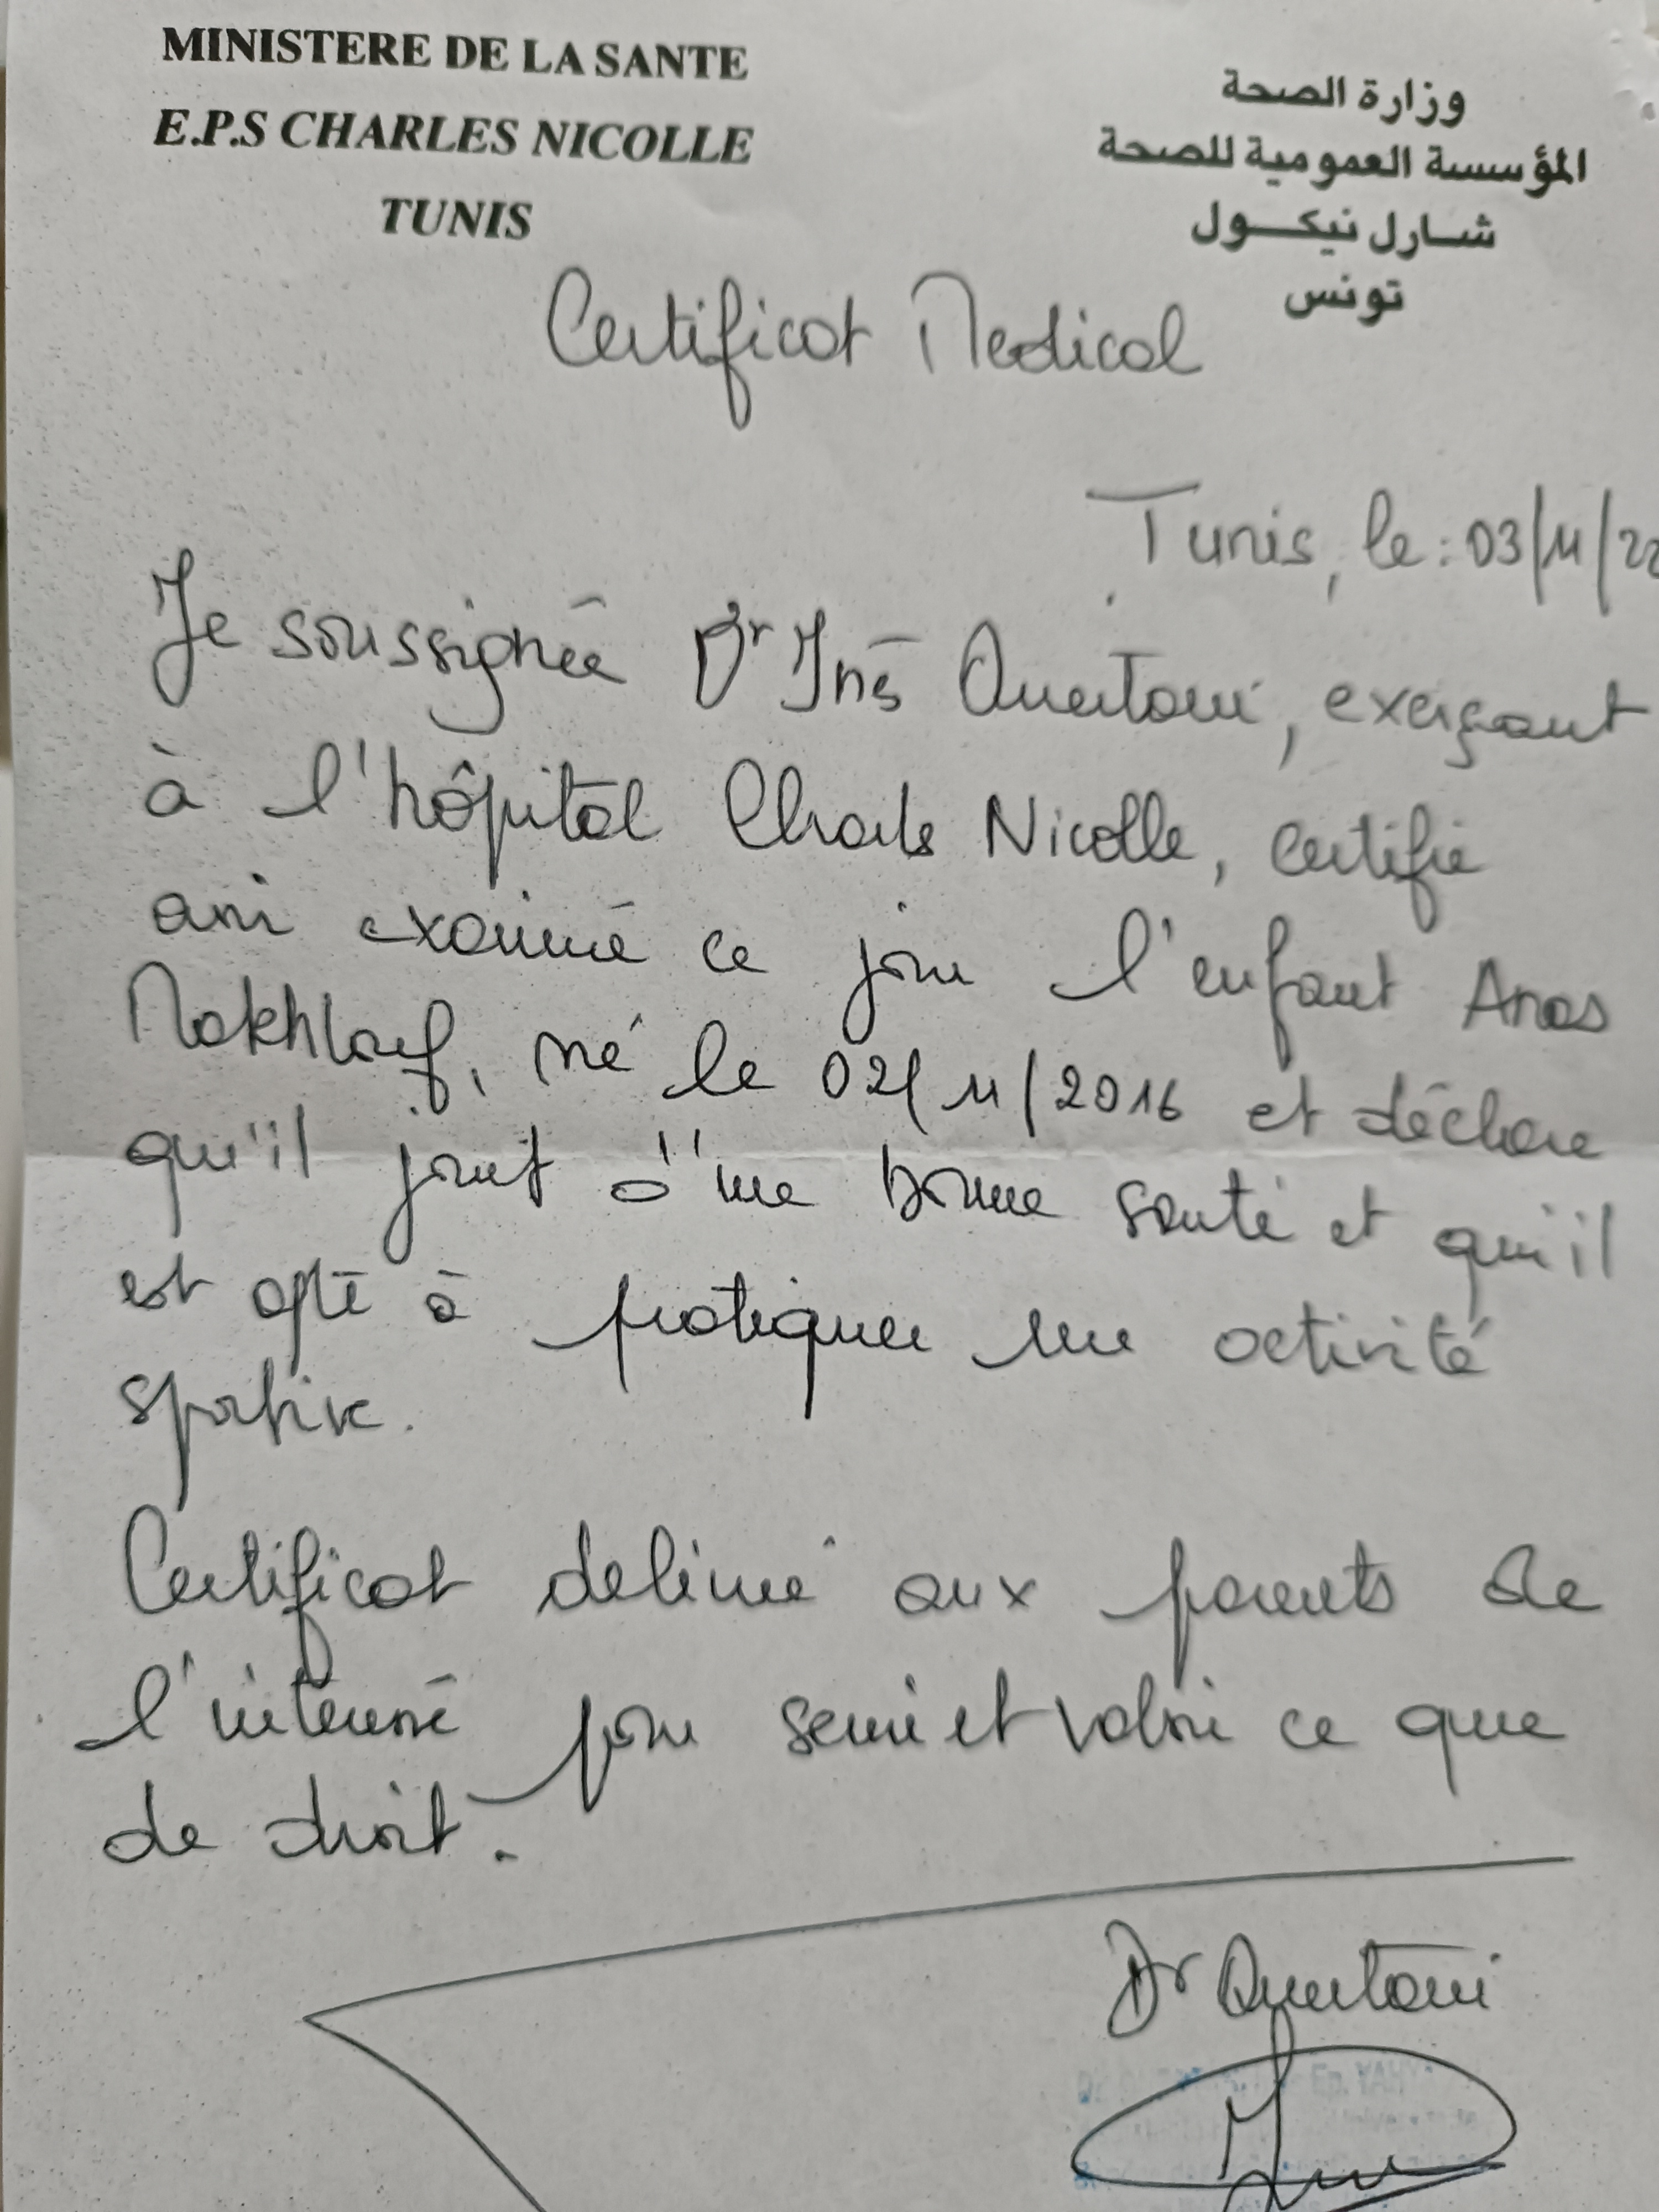 MINISTERE DE LA SANTE
E.P.S CHARLES NICOLLE
TUNIS
وزارة الصحة
المؤسسة العمومية للصحة
شارل نيكول
تونس
Certificat Medical
Tunis, le : 03/11/22
Je soussignée Dr Inès Ouertani, exerçant
à l'hôpital Charles Nicolle, certifie
avoir examiné ce jour l'enfant Anas
Makhlouf, né le 02/11/2016 et déclare
qu'il jouit d'une bonne santé et qu'il
est apte à pratiquer une activité
sportive.
Certificat delivré aux parents de
l'interessé pour servir et valoir ce que
de droit.
Dr Ouertani
Ep. YAHY